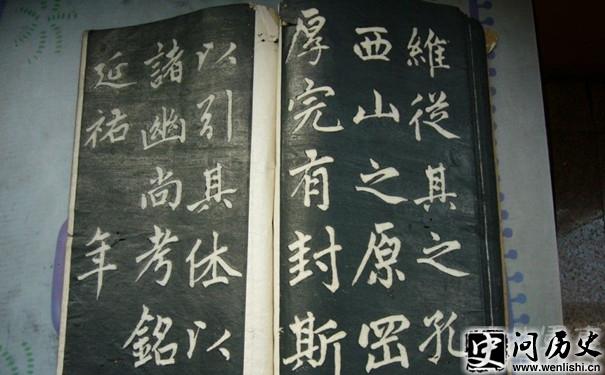 維從其之孔
西山之原岡
厚完有封斯
以引其休以
諸幽尚考銘
延祐 年
问历史
www.wenlishi.cn